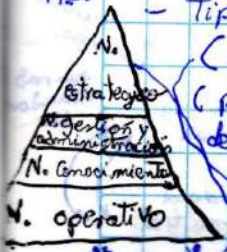 - Tip
N.
estratégico
N. gestión y
administración
N. Conocimiento
N. operativo
C
C p
de